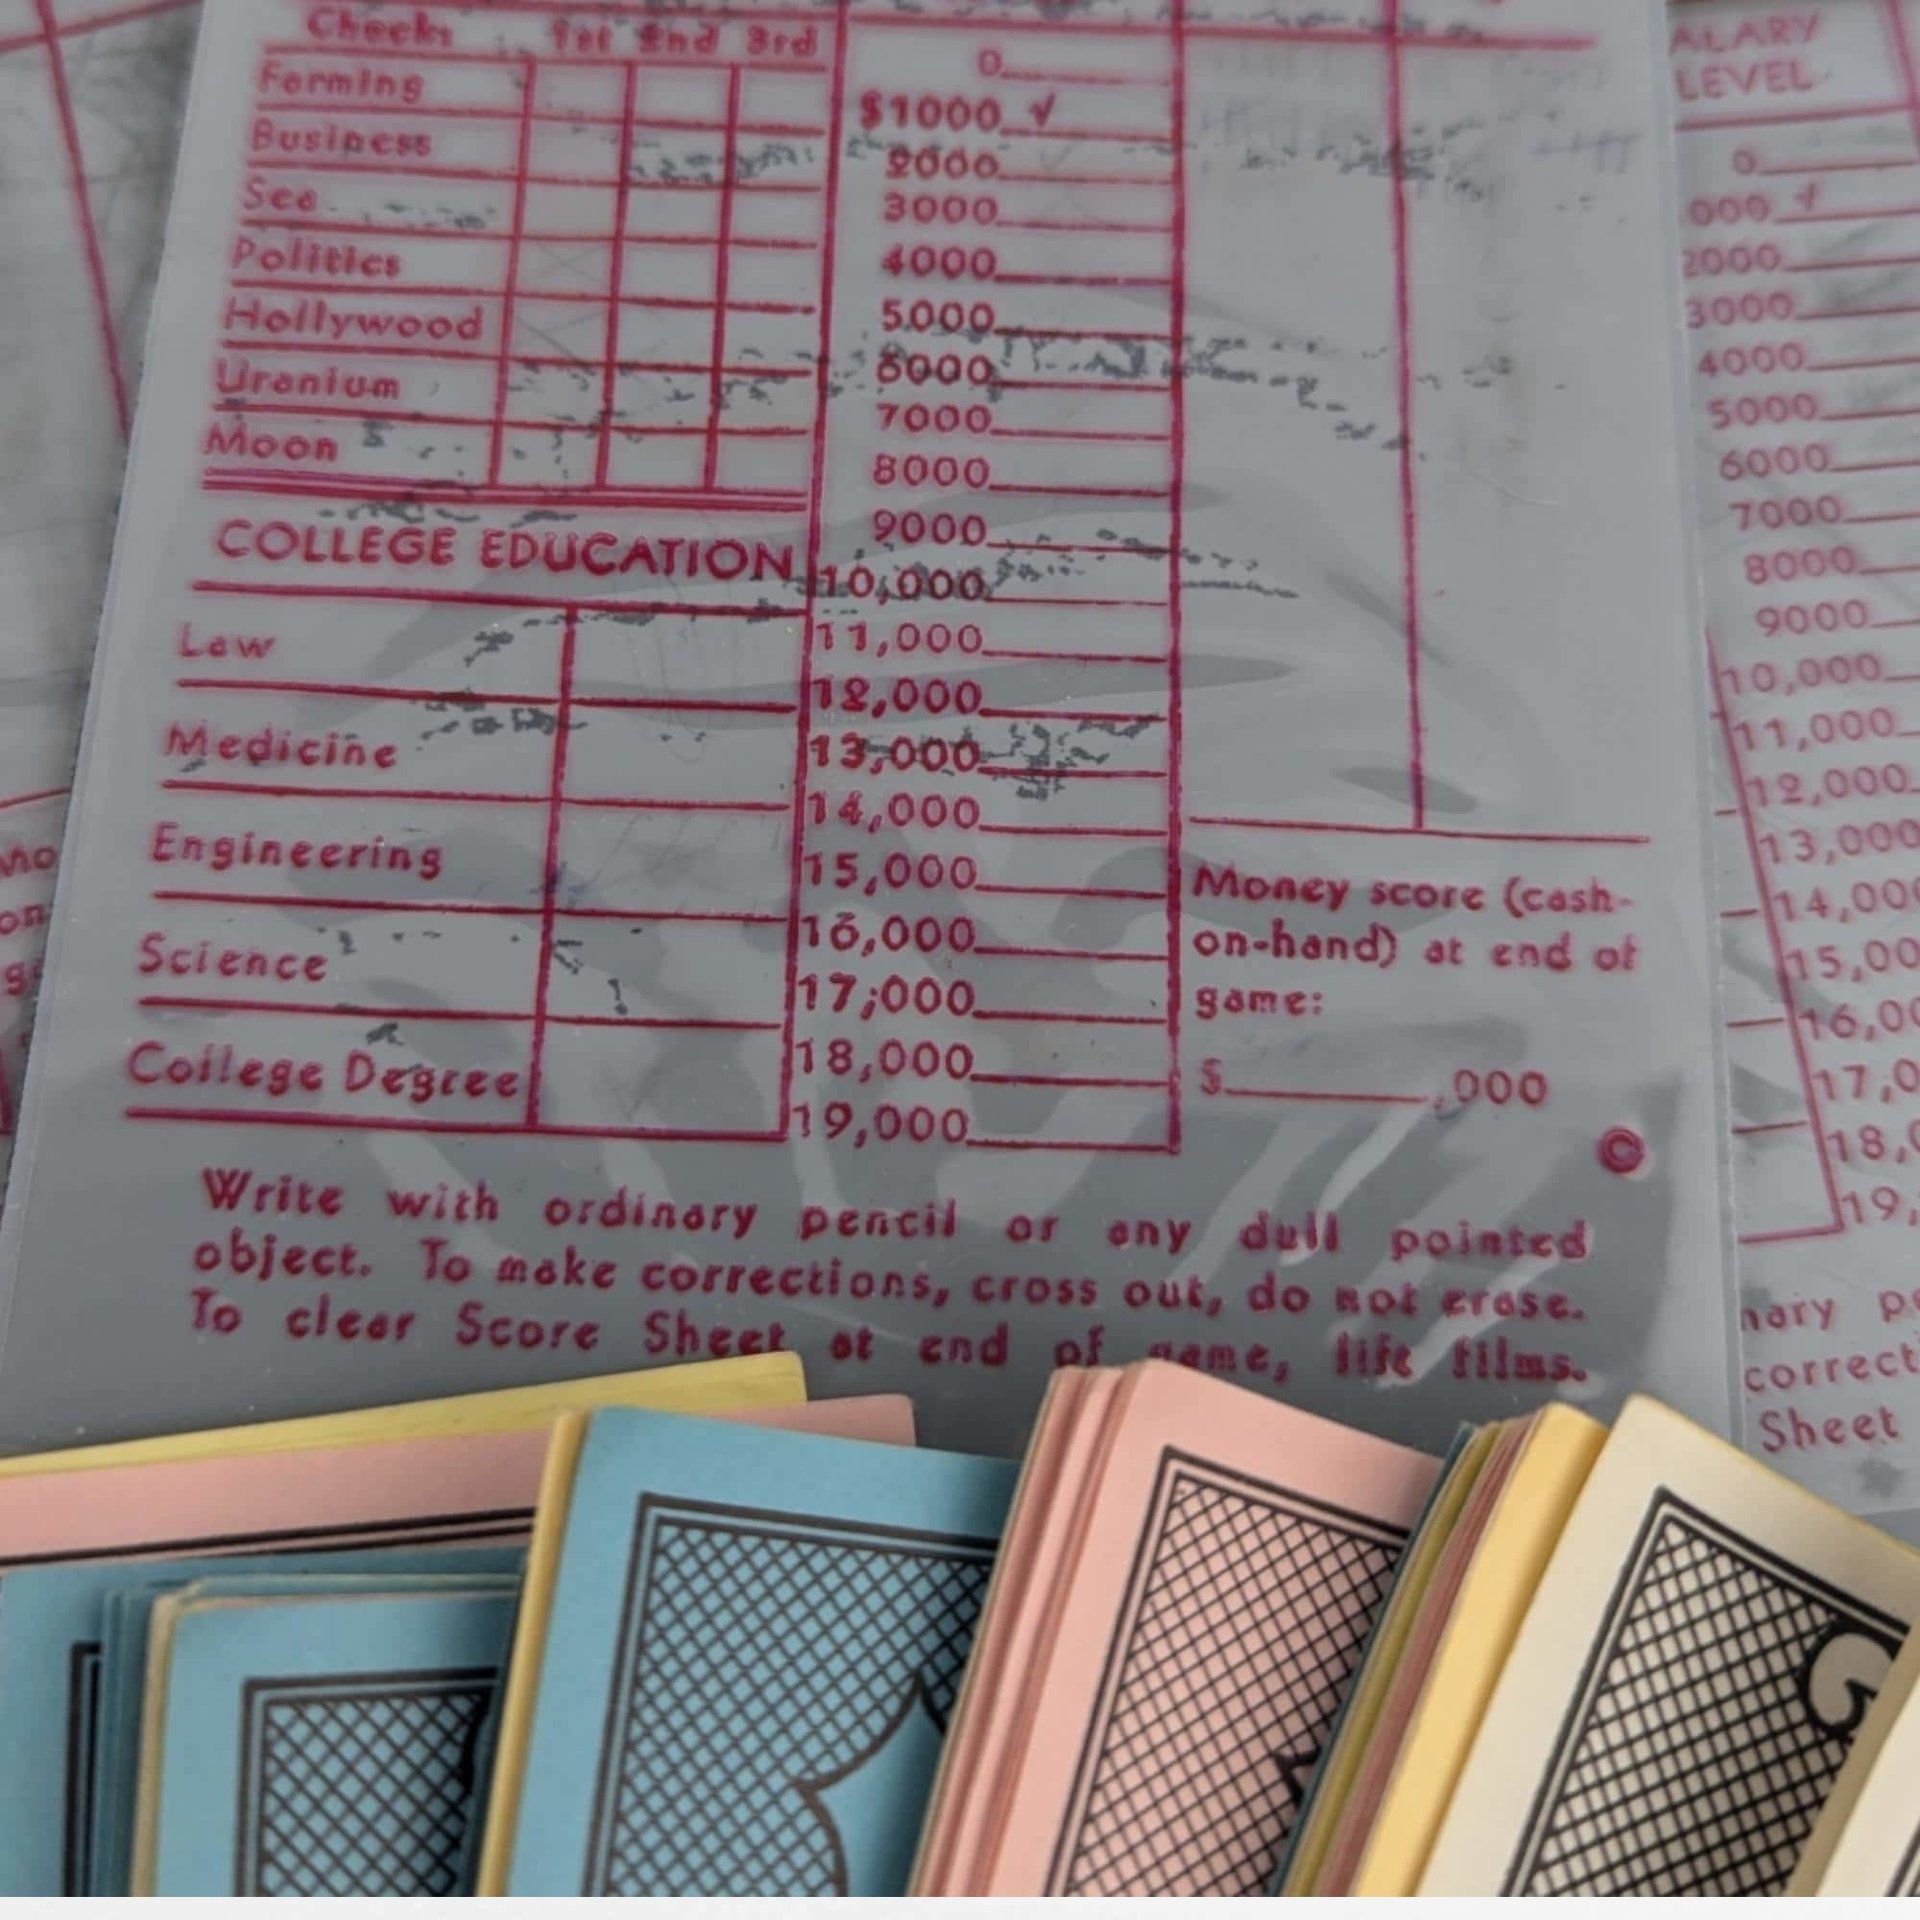 Checks 1st 2nd 3rd
Farming
Business
Sea
Politics
Hollywood
Uranium
Moon
COLLEGE EDUCATION
Law
Medicine
Engineering
Science
College Degree
0
$1000 ✓
2000
3000
4000
5000
6000
7000
8000
9000
10,000
11,000
12,000
13,000
14,000
15,000
16,000
17,000
18,000
19,000
Money score (cash-
on-hand) at end of
game:
$ ,000
©
Write with ordinary pencil or any dull pointed
object. To make corrections, cross out, do not erase.
To clear Score Sheet at end of game, lift films.
ALARY
LEVEL
0
000 ✓
2000
3000
4000
5000
6000
7000
8000
9000
10,000
11,000
12,000
13,000
14,000
15,00
16,00
17,0
18,0
19,
nary pe
correct
Sheet
Mo
on